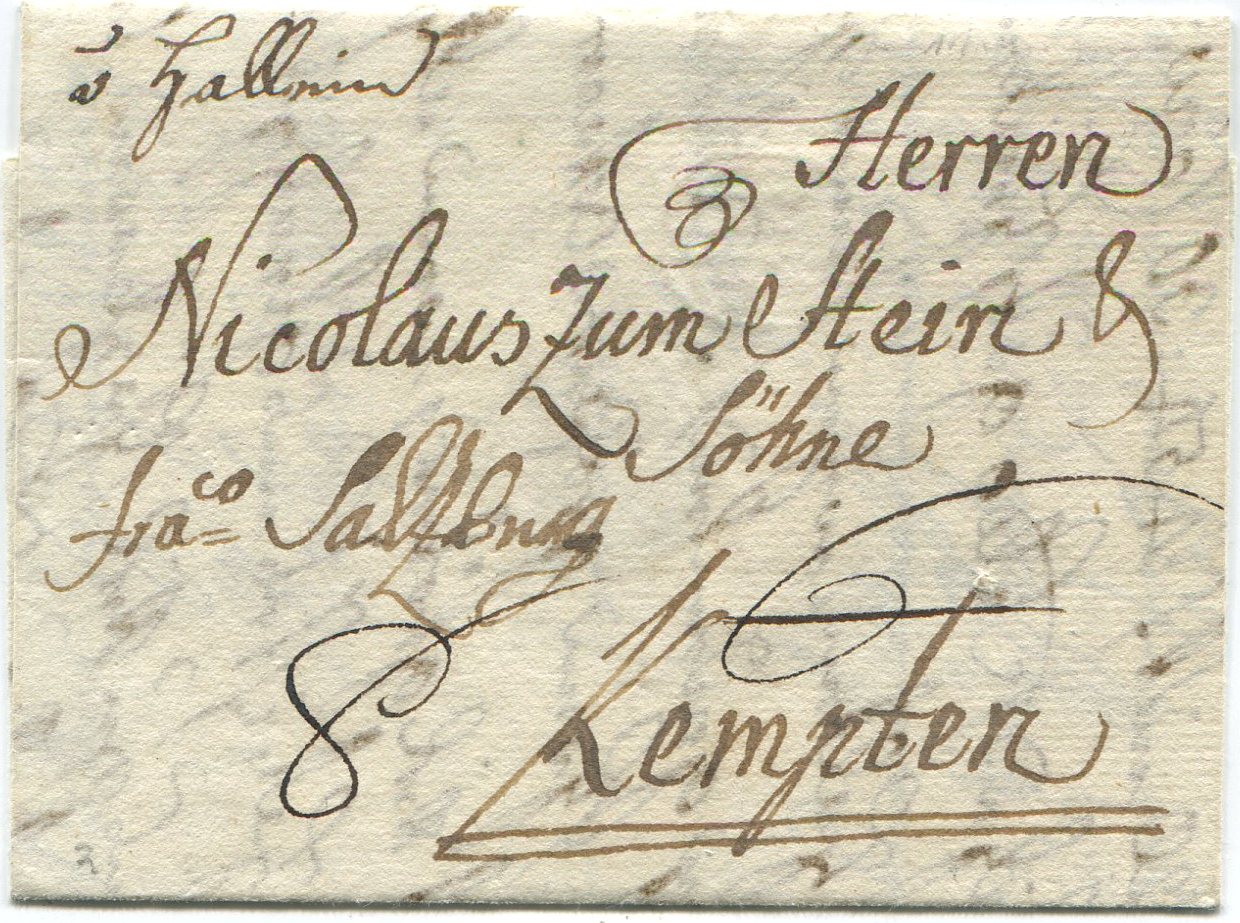 v Hallein
Herren
Nicolaus Zum Stein &
Söhne
fra<sup>co</sup> Saltzburg
8
Kempten